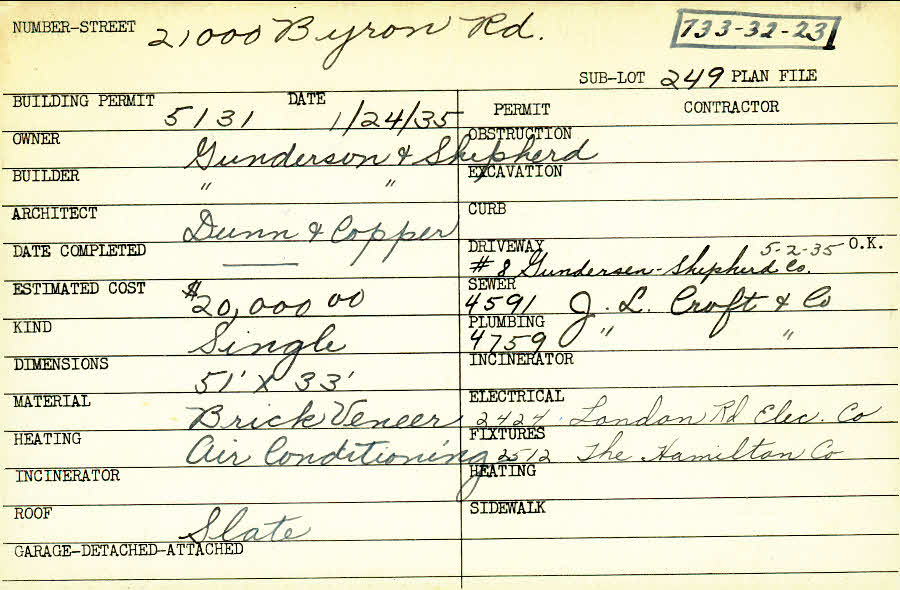 NUMBER-STREET 21000 Byron Rd. 733-32-23
SUB-LOT 249 PLAN FILE
BUILDING PERMIT 5131 DATE 1/24/35
PERMIT CONTRACTOR
OWNER Gunderson & Shepherd
OBSTRUCTION
BUILDER " "
EXCAVATION
ARCHITECT Dunn & Copper
CURB
DATE COMPLETED —
DRIVEWAY 5-2-35 O.K.
# 8 Gundersen-Shepherd Co.
ESTIMATED COST $20,000 00
SEWER 4591 J. L. Croft & Co
KIND Single
PLUMBING 4759 " "
DIMENSIONS 51' X 33'
INCINERATOR
MATERIAL Brick Veneer
ELECTRICAL 2424 London Rd Elec. Co
HEATING Air Conditioning
FIXTURES 2512 The Hamilton Co
INCINERATOR
HEATING
ROOF Slate
SIDEWALK
GARAGE-DETACHED-ATTACHED